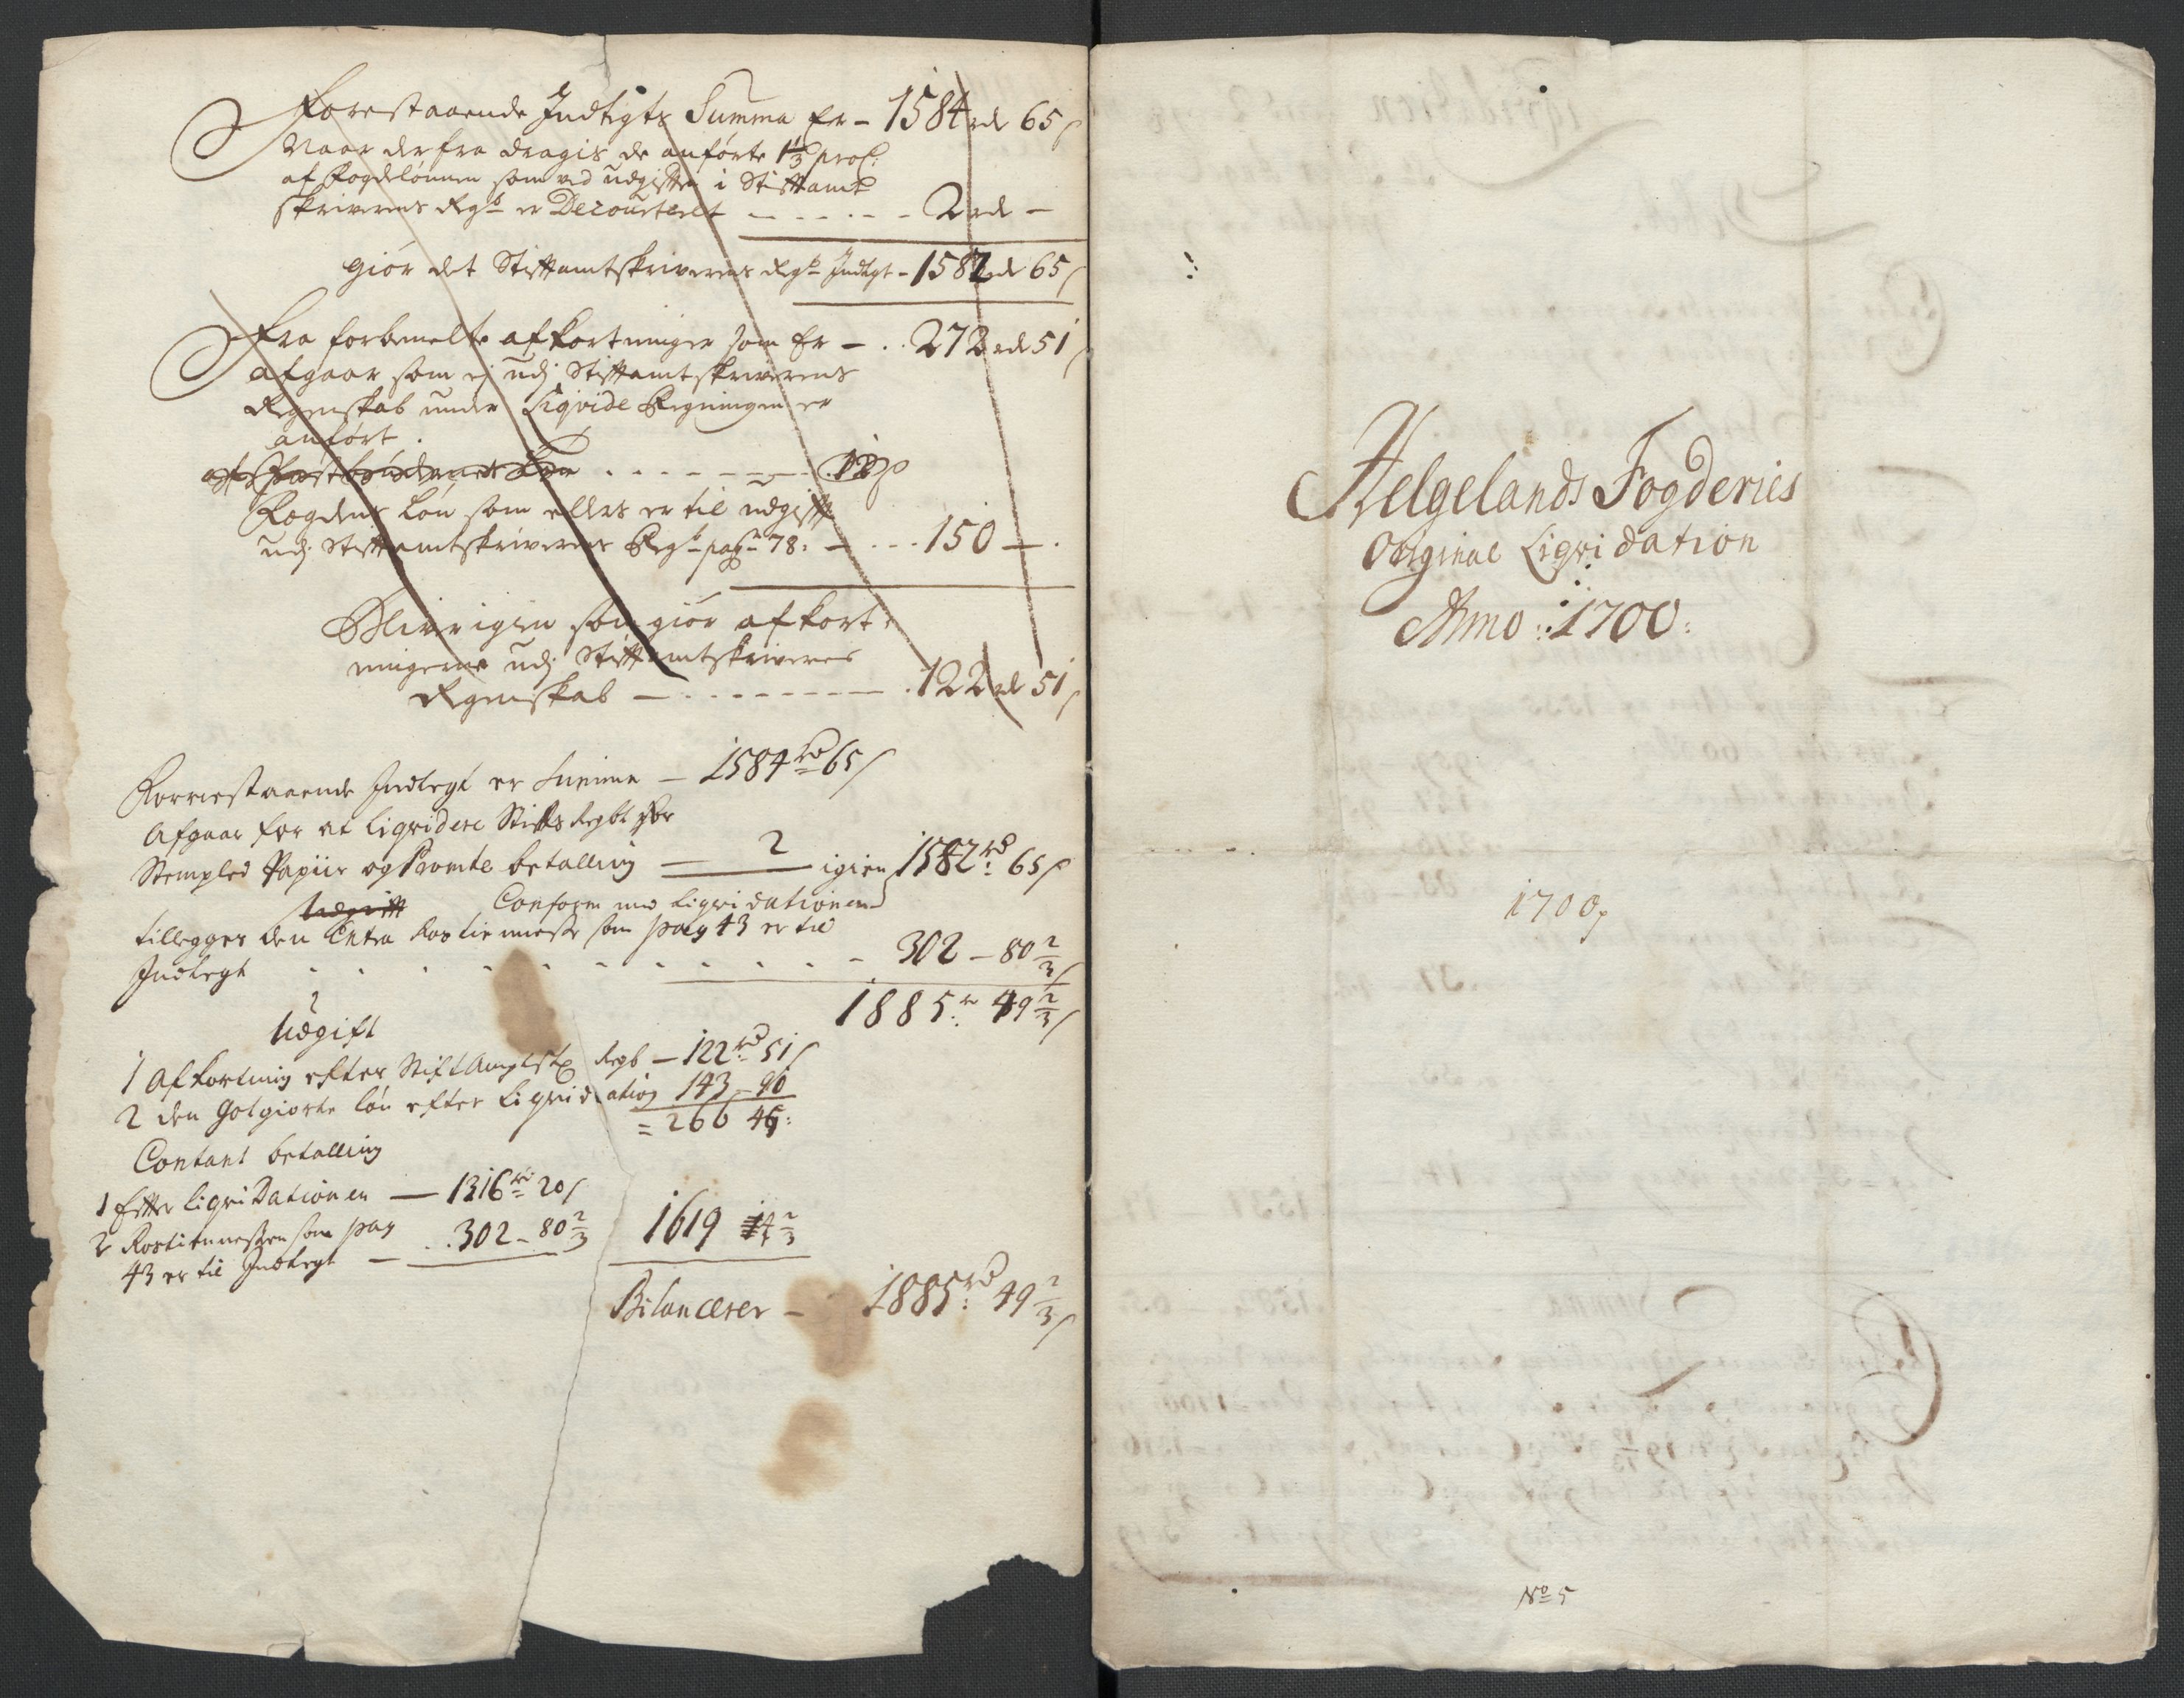 Forestaaende Indtegts Summa Er – 1584 rd 65 s
Naar der fra dragis de anførte 1⅓ proC:
af Fogdelønnen som ved udgiften i Stiftamt
skriverens Regsb er Decourteret – – – – 2 rd –
giør det Stiftamtskriverens Regsb Indtegt – 1582 rd 65 s
Fra forbemelte afkortninger som Er – . . 272 rd 51 s
afgaar som ej udj Stiftamtskriverens
Regenskab under Liqvide Regningen er
anført .
Fogdens Løn som ellers er til udgift
udj Stiftamtskriverens Regsb pag: 78: – . . . 150 – .
Blir igien som giør afkort-
ningerne udj Stiftamtskriverens
Regenskab – . . . . . . . – . 122 rd 51 s
Forrestaaende Indtegt er Summa – 1584 rd 65 s
Afgaar for at liqvidere Stifts Regbt for
Stempled Papiir og Promte betalling — 2 — igien 1582 rd: 65 s
Udgift Conform med Liqvidationen
tillegges den Extra Rostienneste som pag 43 er til
Indtegt . . . . . . . . . . – 302 – 80 2/3 s
1885 rd: 49 2/3 s
Udgift
1 Afkortning efter StiftAmptsk Regb – 122 rd 51 s
2 den Gotgiorte løn efter Liqvidation 143 – 91
= 266 46:
Contant betalling
1 Efter liqvidationen — 1316 rd 20 s
2 Rostiennesten som pag
43 er til Indtegt – . . 302 – 80 2/3 1619 4 2/3
Bilancerer – 1885 rd: 49 2/3 s
Helgelands Fogderies
Original Liqvidation
Anno: 1700:
1700
No 5